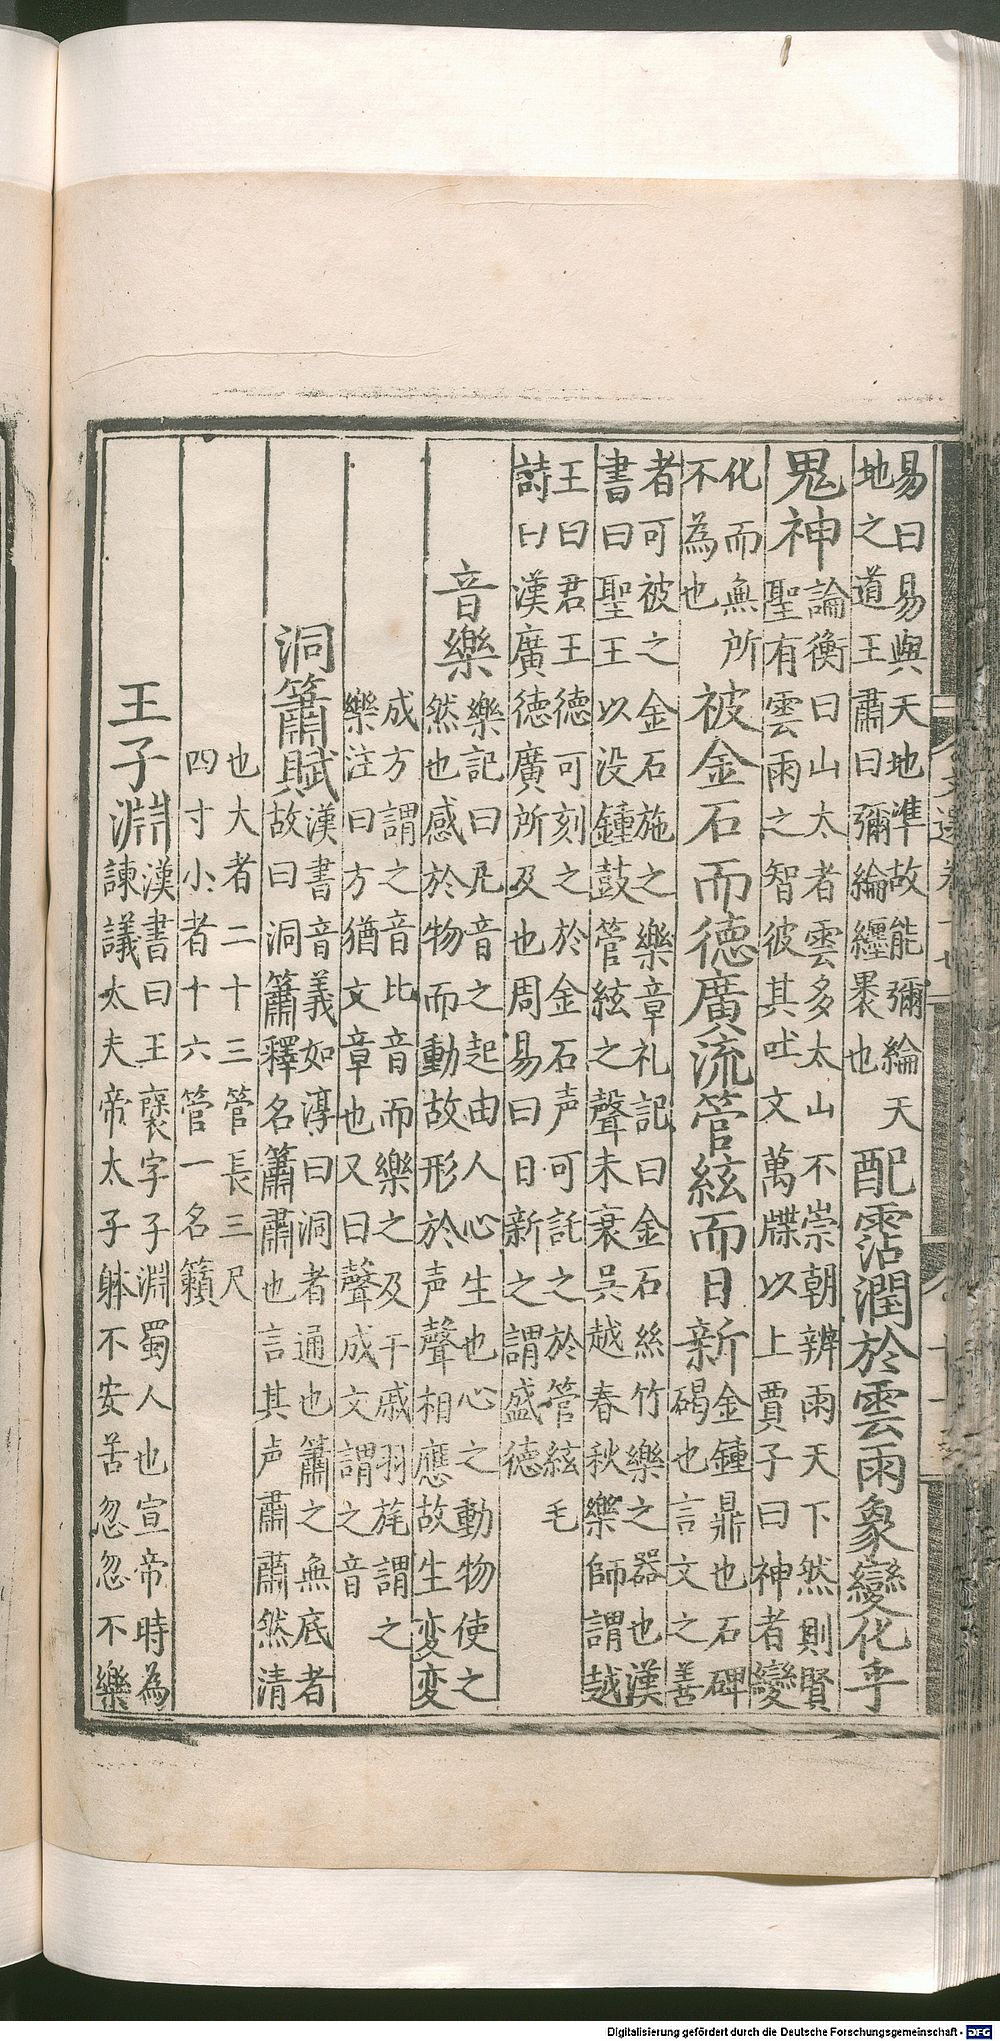 易曰易與天地準故能彌綸天
地之道王肅曰彌綸纏裹也
配霑潤於雲雨象變化乎
鬼神
論衡曰山太者雲多太山不崇朝辨雨天下然則賢
聖有雲雨之智彼其吐文萬牒以上賈子曰神者變
化而無所
不為也
被金石而德廣流管絃而日新
金鍾鼎也石碑
碣也言文之善
者可被之金石施之樂章礼記曰金石絲竹樂之器也漢
書曰聖王以没鍾鼓管絃之聲未衰吳越春秋樂師謂越
王曰君王德可刻之於金石声可託之於管絃毛
詩曰漢廣德廣所及也周易曰日新之謂盛德
音樂
樂記曰凡音之起由人心生也心之動物使之
然也感於物而動故形於声聲相應故生変変
成方謂之音比音而樂之及干戚羽旄謂之
樂注曰方猶文章也又曰聲成文謂之音
洞簫賦
漢書音義如淳曰洞者通也簫之無底者
故曰洞簫釋名簫肅也言其声肅肅然清
也大者二十三管長三尺
四寸小者十六管一名籟
王子淵
漢書曰王襃字子淵蜀人也宣帝時為
諫議太夫帝太子躰不安苦忽忽不樂
Digitalisierung gefördert durch die Deutsche Forschungsgemeinschaft - DFG